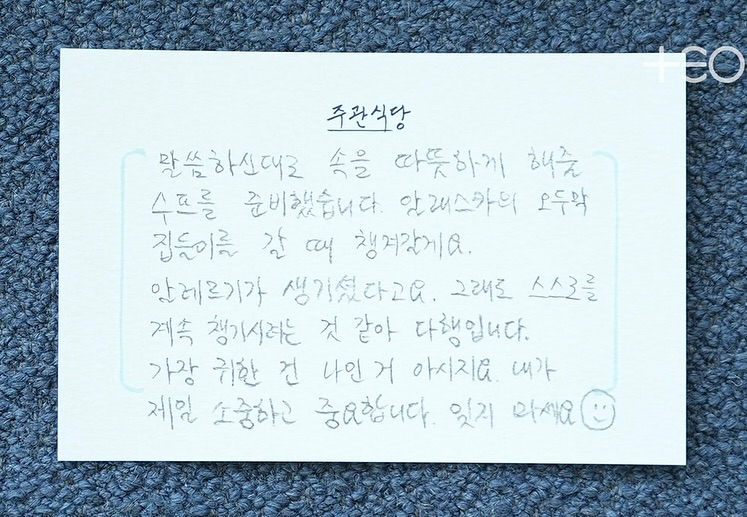 TEO
주관식당
말씀하신대로 속을 따뜻하게 해줄
수프를 준비했습니다. 알래스카의 오두막
집들이를 갈 때 챙겨갈게요.
알레르기가 생기셨다고요. 그래도 스스로를
계속 챙기시려는 것 같아 다행입니다.
가장 귀한 건 나인 거 아시지요. 내가
제일 소중하고 중요합니다. 잊지 마세요